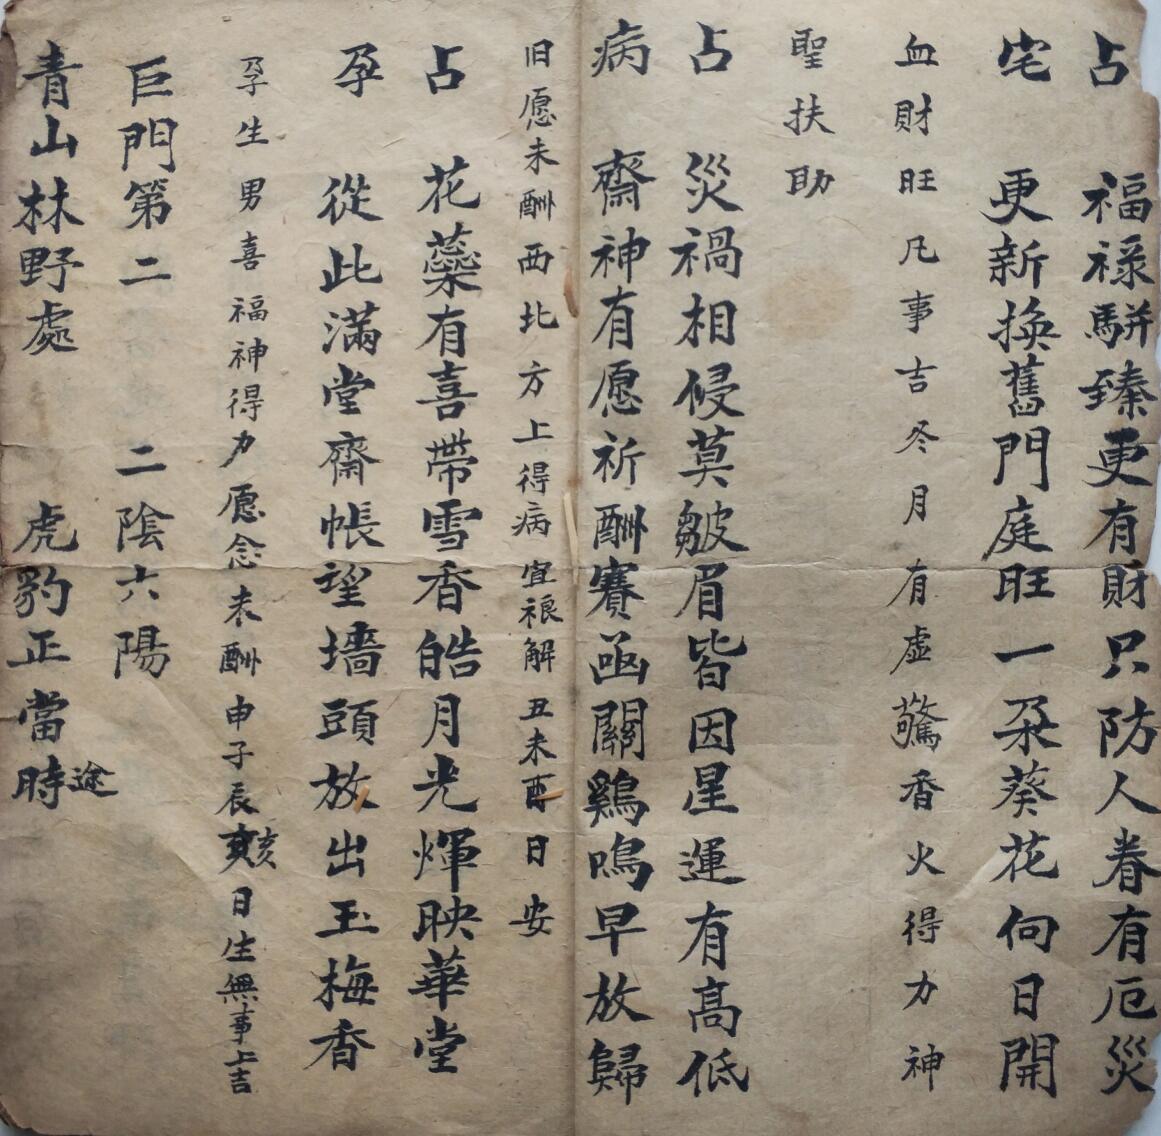 占 福祿駢臻更有財只防人眷有厄災
宅 更新換舊門庭旺一朶葵花向日開
血財旺凡事吉冬月有虛驚香火得力神
聖扶助
占 災禍相侵莫皺眉皆因星運有高低
病 齋神有愿祈酬賽凾關鷄鳴早放歸
旧愿未酬西北方上得病宜禳解丑未酉日安
占 花蘂有喜帶雪香皓月光煇映華堂
孕 從此滿堂齋帳望墻頭放出玉梅香
孕生男喜福神得力愿念未酬申子辰亥亥日生無事上吉
巨門第二 二陰六陽
青山林野處 虎豹正當時途